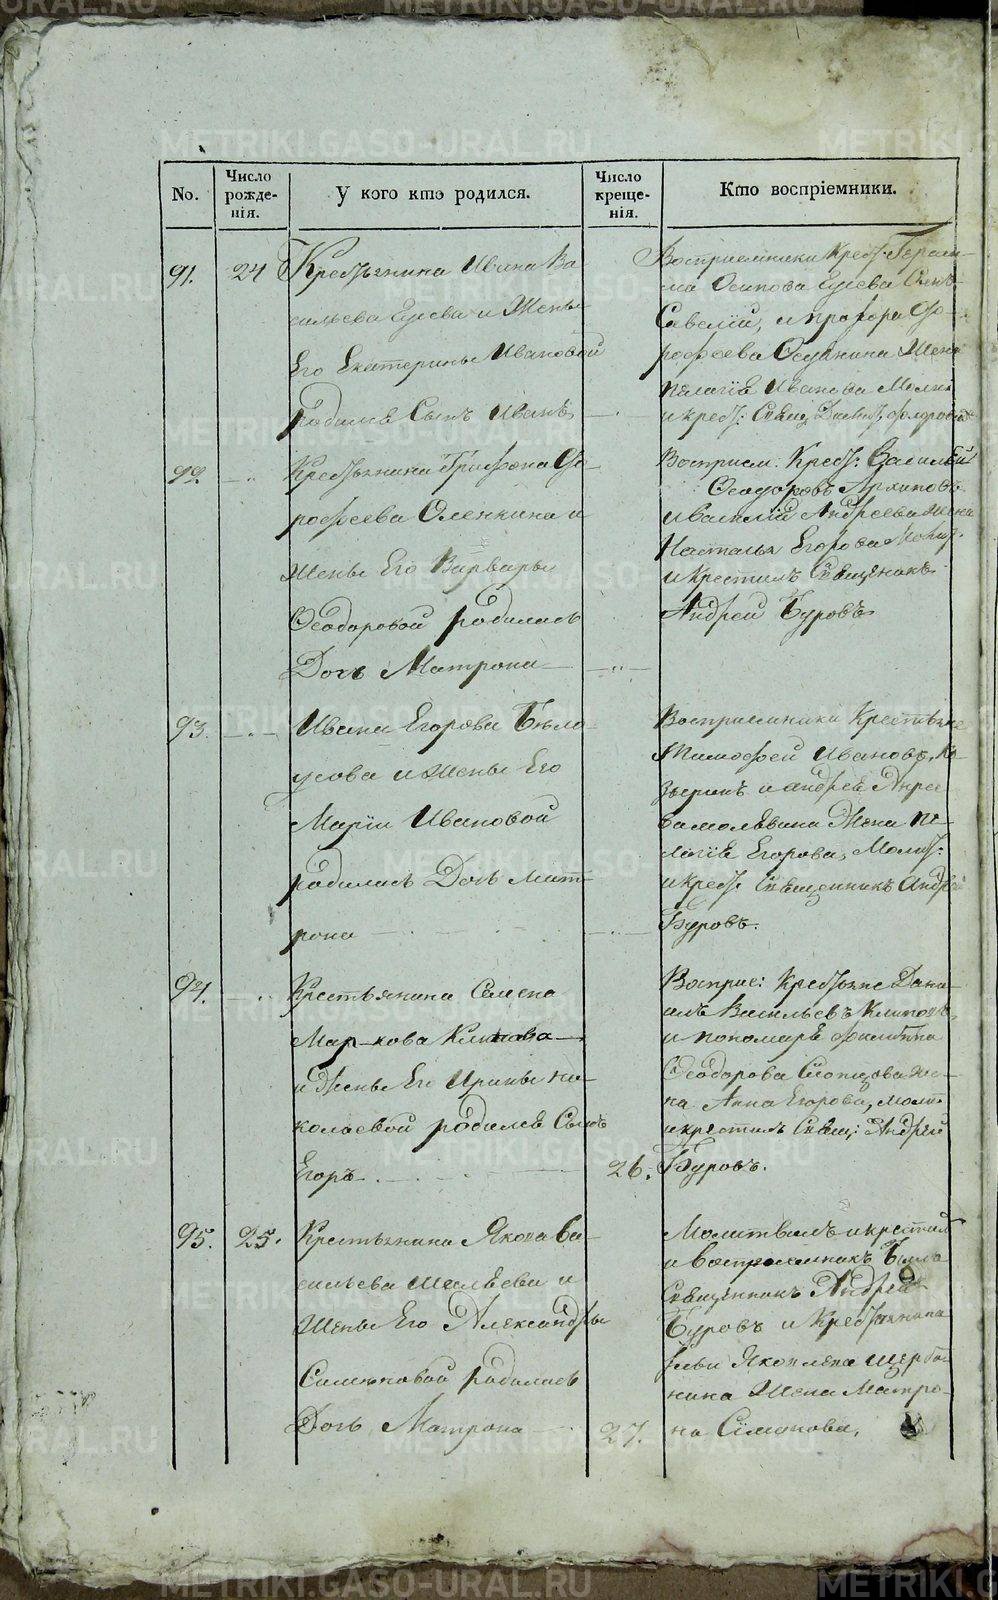 METRIKI.GASO-URAL.RU
No.
Число рожде-нія.
У кого кто родился.
Число креще-нія.
Кто воспріемники.
91.
24
Крестьянина Ивана Ва-
сильева Елева и Жены
Его Екатерины Ивановой
родился Сынъ Иванъ
Восприемники Крест: Гераси-
ма Осипова Елева Сынъ
Савелий, и
рофеева Жена
Пелагiя Иванова Молит.
и крест: Свящ.
92.
Крестьянина Трифона
рофеева Оленкина и
жены Его Варвары
Феодоровой родилась
Дочь Матрона
Восприем: Крест: Василей
Феодоровъ Архиповъ
и Василiй Андреева жена
Наталья Егорова Молит.
и крестилъ Священникъ
Андрей Буровъ
93.
Ивана Егорова Бело-
усова и Жены Его
Марiи Ивановой
родилась Дочь Мат-
рона
Восприемники Крестьяне
Тимофей Ивановъ
и андрея Андрее
ва Жена Пе-
лагiя Егорова, Молит:
и крест: Священникъ Андрей
Буровъ.
94.
Крестьянина Семена
Маркова Климова
и Жены Его Ирины Ни-
колаевой родился Сынъ
Егоръ
26.
Восприе: Крестьяне Дани-
илъ Васильевъ Климовъ,
и пономаря Филиппа
Феодорова Жe-
на Анна Егорова, молит
и крестилъ Свящ: Андрей
Буровъ.
95.
25.
Крестьянина Якова Ва-
сильева и
жены Его Александры
Симоновой родилась
Дочь Матрона
27.
Молитвилъ и крестилъ
и Восприемникъ Былъ
Священникъ Андрей
Буровъ и Крестьянина
Ильи Яковлева Щерба-
кина Жена Матро-
на Симонова,